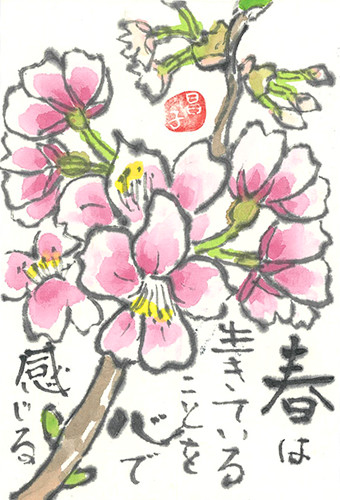 春は
生きている
ことを
心で
感じる
昌子